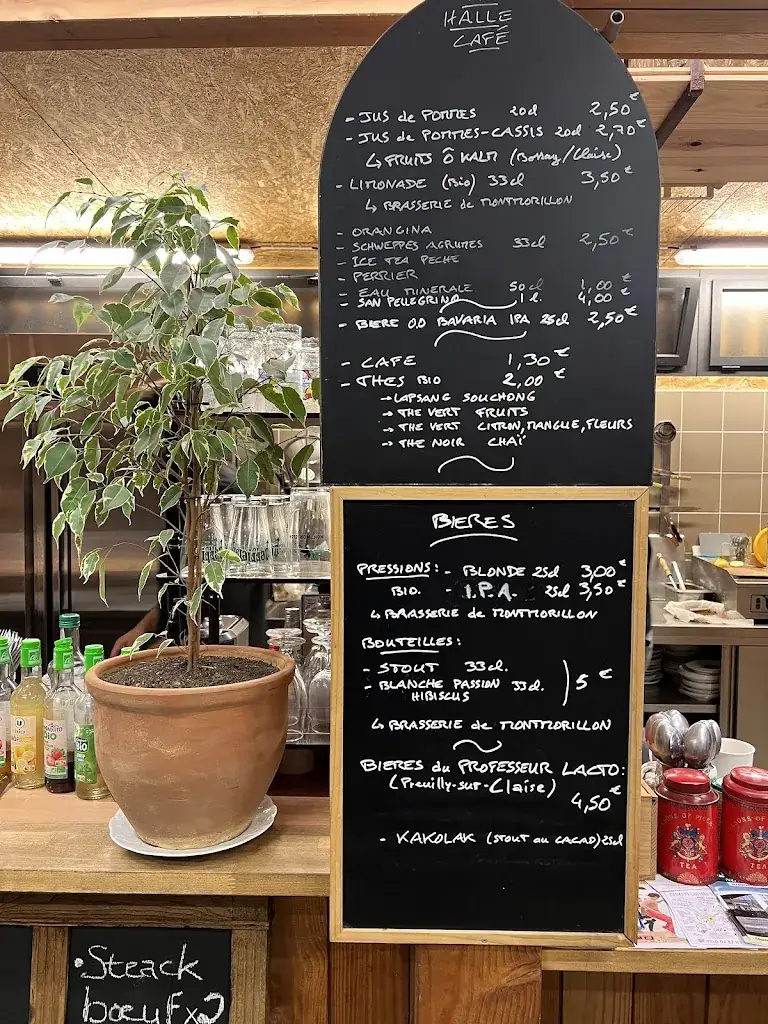 HALLE
CAFÉ
- JUS de POMMES 20cl 2,50€
- JUS de POMMES-CASSIS 20cl 2,70€
↳ FRUITS Ô KALM (Bossay/Claise)
- LIMONADE (Bio) 33cl 3,50€
↳ BRASSERIE de MONTMORILLON
- ORANGINA
- SCHWEPPES AGRUMES 33cl 2,50€
- ICE TEA PECHE
- PERRIER
- EAU MINERALE 50cl 1,00€
- SAN PELLEGRINO 1l. 4,00€
- BIERE 0,0 BAVARIA IPA 25cl 2,50€
- CAFE 1,30€
- THES BIO 2,00€
→ LAPSANG SOUCHONG
→ THE VERT FRUITS
→ THE VERT CITRON, MANGUE, FLEURS
→ THE NOIR CHAÏ
BIERES
PRESSIONS: - BLONDE 25cl 3,00€
BIO. - I.P.A. 25cl 3,50€
↳ BRASSERIE de MONTMORILLON
BOUTEILLES:
- STOUT 33cl.
- BLANCHE PASSION 33cl. 5€
HIBISCUS
↳ BRASSERIE de MONTMORILLON
BIERES du PROFESSEUR LACTO:
(Preuilly-sur-Claise)
4,50€
- KAKOLAK (STOUT au CACAO) 25cl
U
BIO
TEA
TEA
• Steack
bœuf x2